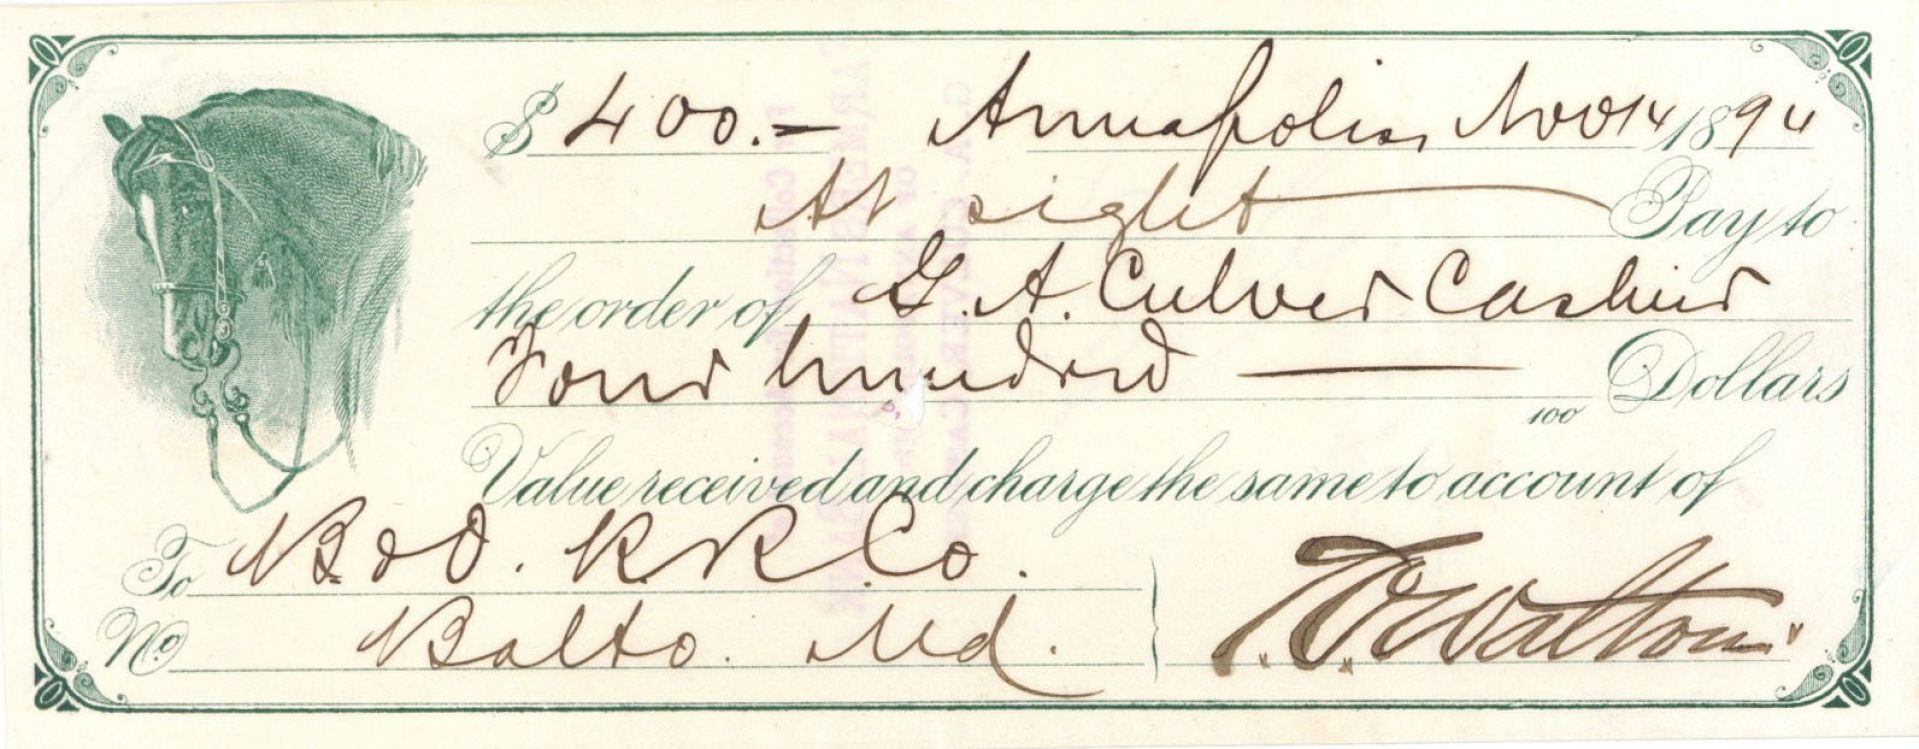 $ 400.= Annapolis, Nov 14 1894
At sight Pay to
the order of G. A. Culver Cashier
Four hundred 100 Dollars
Value received and charge the same to account of
To B & O. R. R. Co.
No Balto. Md. Walton